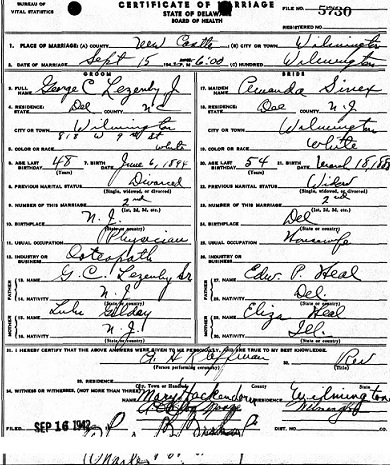 BUREAU OF
VITAL STATISTICS
CERTIFICATE OF MARRIAGE
STATE OF DELAWARE
BOARD OF HEALTH
FILE NO. 5730
REGISTERED NO.
1. PLACE OF MARRIAGE: (A) COUNTY New Castle (B) CITY OR TOWN Wilmington
2. DATE OF MARRIAGE Sept 15 6:00 (C) HUNDRED Wilmington
GROOM
3. FULL NAME George C Lezenby Jr
4. RESIDENCE: STATE Del N C
CITY OR TOWN Wilmington
818 W 9 St
5. COLOR OR RACE white
6. AGE LAST BIRTHDAY 48 (Years) 7. BIRTH DATE June 6, 1894
8. PREVIOUS MARITAL STATUS Divorced
(Single, widowed, or divorced)
9. NUMBER OF THIS MARRIAGE 2nd
(1st, 2d, 3d, etc.)
10. BIRTHPLACE N. J.
(State or country)
11. USUAL OCCUPATION Physician
12. INDUSTRY OR BUSINESS Osteopath
FATHER
13. NAME G. C. Lezenby Sr
14. NATIVITY N. J.
(State or country)
MOTHER
15. NAME Lulu Gilday
16. NATIVITY N. J.
(State or country)
BRIDE
17. MAIDEN NAME Sinex
18. RESIDENCE: STATE Del
CITY OR TOWN Wilmington
19. COLOR OR RACE White
20. AGE LAST BIRTHDAY 54 (Years) 21. BIRTH DATE
22. PREVIOUS MARITAL STATUS Widow
(Single, widowed or divorced)
23. NUMBER OF THIS MARRIAGE 2nd
(1st, 2d, 3d, etc.)
24. BIRTHPLACE Del
(State or country)
25. USUAL OCCUPATION Housewife
26. INDUSTRY OR BUSINESS
FATHER
27. NAME Edw. P. Heal
28. NATIVITY Del.
(State or country)
MOTHER
29. NAME Eliza Heal
30. NATIVITY Ill.
(State or country)
31. I HEREBY CERTIFY THAT THE ABOVE ANSWERS WERE GIVEN TO ME PERSONALLY, FOR THE BEST OF MY KNOWLEDGE.
(Person performing ceremony) 32. Rev
(Title)
33. RESIDENCE:
City, Town or Hundred County State
34. WITNESS OR WITNESSES, (NOT MORE THAN THREE) Mary Wilmington
Wilmington
FILED SEP 16 1942
DIST. NO.